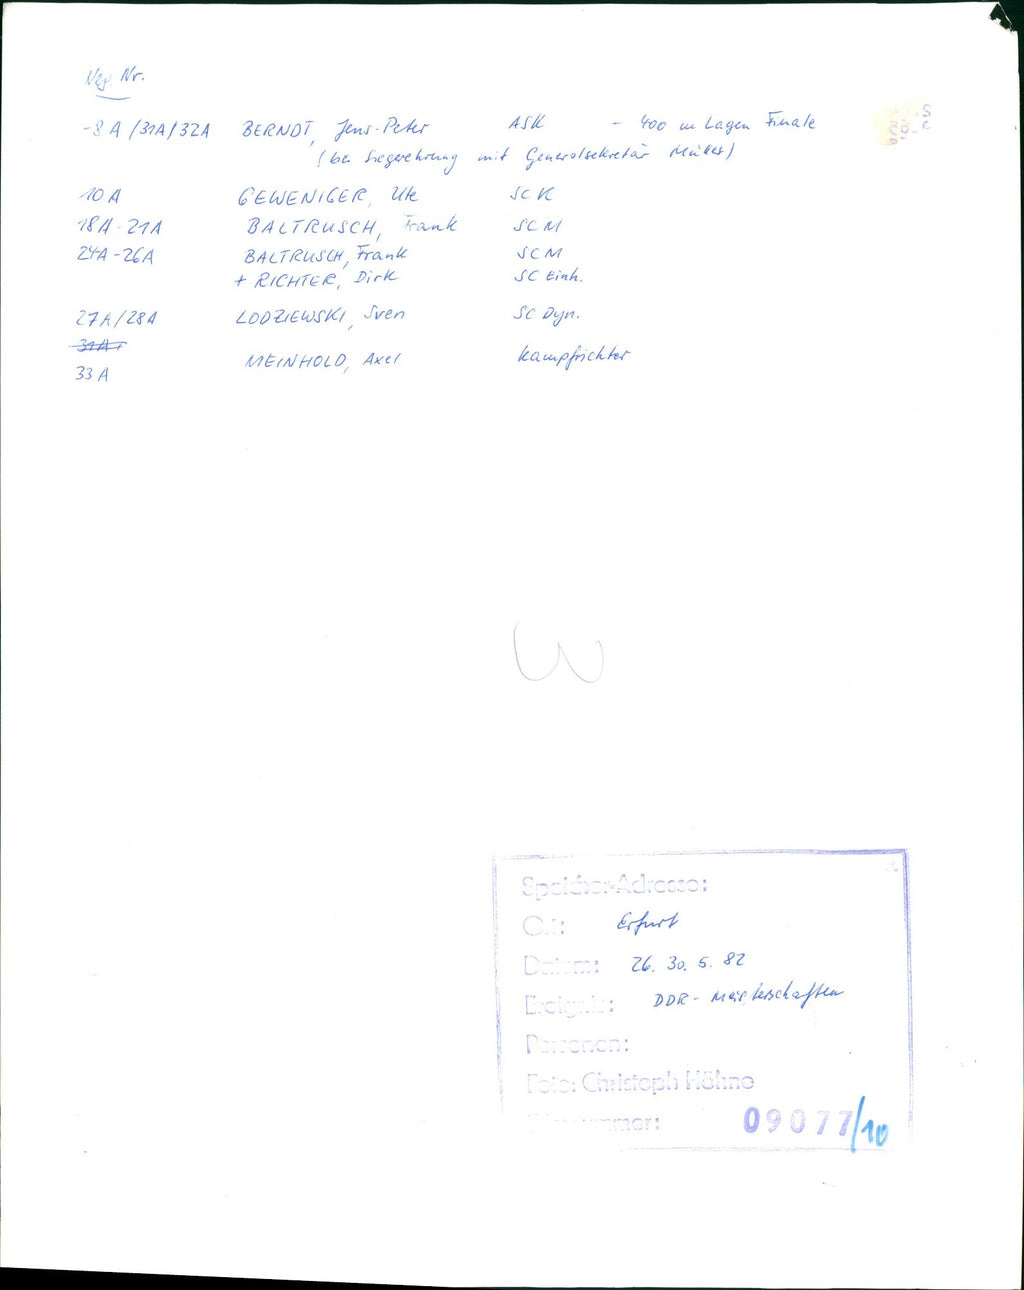 Neg Nr.
-8A/31A/32A BERNDT, Jens-Peter ASK - 400 m Lagen Finale
(bei Siegerehrung mit Generalsekretär Müller)
10A GEWENIGER, Ute SCK
18A-21A BALTRUSCH, Frank SCM
24A-26A BALTRUSCH, Frank SCM
+ RICHTER, Dirk SC Einh.
27A/28A LODZIEWSKI, Sven SC Dyn.
31A
33A MEINHOLD, Axel Kampfrichter
3
Speicher-Adresse:
Ort: Erfurt
Datum: 26. 30. 5. 82
Ereignis: DDR-Meisterschaften
Personen:
Foto: Christoph Höhne
09077/10